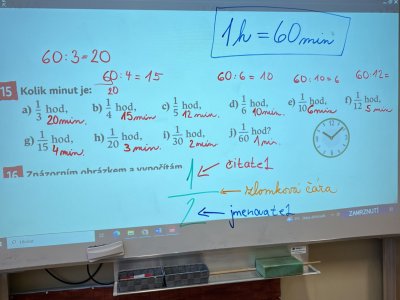 1h = 60 min
60:3=20
60:4=15
20
60:6=10
60:10=6
60:12=
15 Kolik minut je:
a) 1/3 hod, 20min.
b) 1/4 hod, 15min
c) 1/5 hod, 12min.
d) 1/6 hod, 10min.
e) 1/10 hod, 6min
f) 1/12 hod, 5 min
g) 1/15 hod, 4min.
h) 1/20 hod, 3min.
i) 1/30 hod, 2min
j) 1/60 hod? 1m.
16 Znázorním obrázkem a vypočítám
1 ← čitatel
← zlomková čára
2 ← jmenovatel
ZAMRZNUTÍ